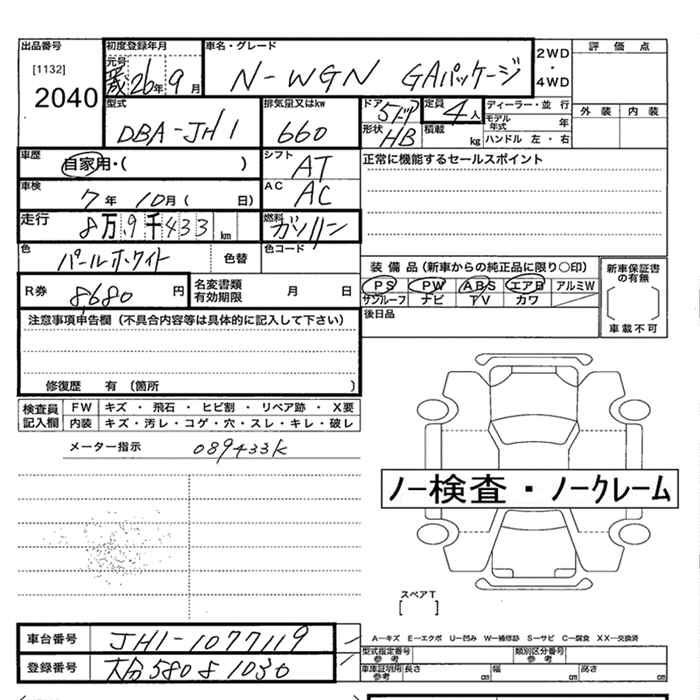 出品番号
[1132]
2040
初度登録年月
元号
26年 9月
車名・グレード
N-WGN GAパッケージ
2WD
・
4WD
評価点
外装 内装
型式
DBA-JH1
排気量又はkw
660
ドア
5ドア
形状
HB
定員
4人
積載
kg
ディーラー・並行
モデル年式 年
ハンドル 左・右
車歴
自家用・( )
シフト
AT
正常に機能するセールスポイント
車検
7年 10月( 日)
AC
AC
走行
8万9千433km
燃料
ガソリン
色
パールホワイト
色替
色コード
装備品(新車からの純正品に限り○印)
PS PW ABS エアB アルミW
サンルーフ ナビ TV カワ
新車保証書の有無
車載不可
R券
8680円
名変書類有効期限 月 日
後日品
注意事項申告欄(不具合内容等は具体的に記入して下さい)
修復歴 有〔箇所 〕
検査員記入欄
FW キズ・飛石・ヒビ割・リペア跡・X要
内装 キズ・汚レ・コゲ・穴・スレ・キレ・破レ
メーター指示 089433K
ノー検査・ノークレーム
スペアT
[ ]
車台番号 JH1-1077119
登録番号 大分580 1030
A−キズ E−エクボ U−凹み W−補修跡 S−サビ C−腐食 XX−交換済
型式指定番号 参考
類別区分番号 参考
車庫証明用 参考 長さ cm 幅 cm 高さ cm